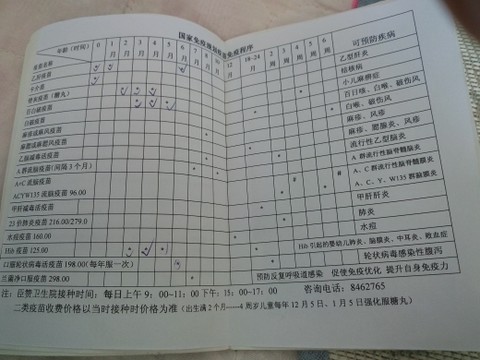 国家免疫规划疫苗免疫程序
年龄（时间） 0 1月 2月 3月 4月 5月 6月 7月 8月 12月 18-24月 2周 3周 4周 5周 6周 可预防疾病
疫苗名称
乙肝疫苗 乙型肝炎
卡介苗 结核病
脊灰疫苗（糖丸） 小儿麻痹症
百白破疫苗 百日咳、白喉、破伤风
白破疫苗 白喉、破伤风
麻疹或麻风疫苗 麻疹、风疹
麻腮或麻腮风疫苗 麻疹、腮腺炎、风疹
乙脑减毒活疫苗 流行性乙型脑炎
A群流脑疫苗（间隔3个月） A群流行性脑脊髓脑炎
A+C流脑疫苗 A、C群流行性脑脊髓膜炎
ACYW135流脑疫苗 96.00 A、C、Y、W135群脑膜炎
甲肝减毒活疫苗 甲肝肝炎
23价肺炎疫苗 216.00/279.0 肺炎
水痘疫苗 160.00 水痘
Hib疫苗 125.00 Hib引起的婴幼儿肺炎、脑膜炎、中耳炎、败血症
口服轮状病毒活疫苗 198.00（每年服一次） 轮状病毒感染性腹泻
兰菌沙口服疫苗 298.00 预防反复呼吸道感染 促使免疫优化 提升自身免疫力
注：臣赞卫生院接种时间：每日上午 9：00-11：00 下午：15：00-17：00 咨询电话：8462765
二类疫苗收费价格以当时接种时价格为准（出生满2个月——4周岁儿童每年12月5日、1月5日强化服糖丸）